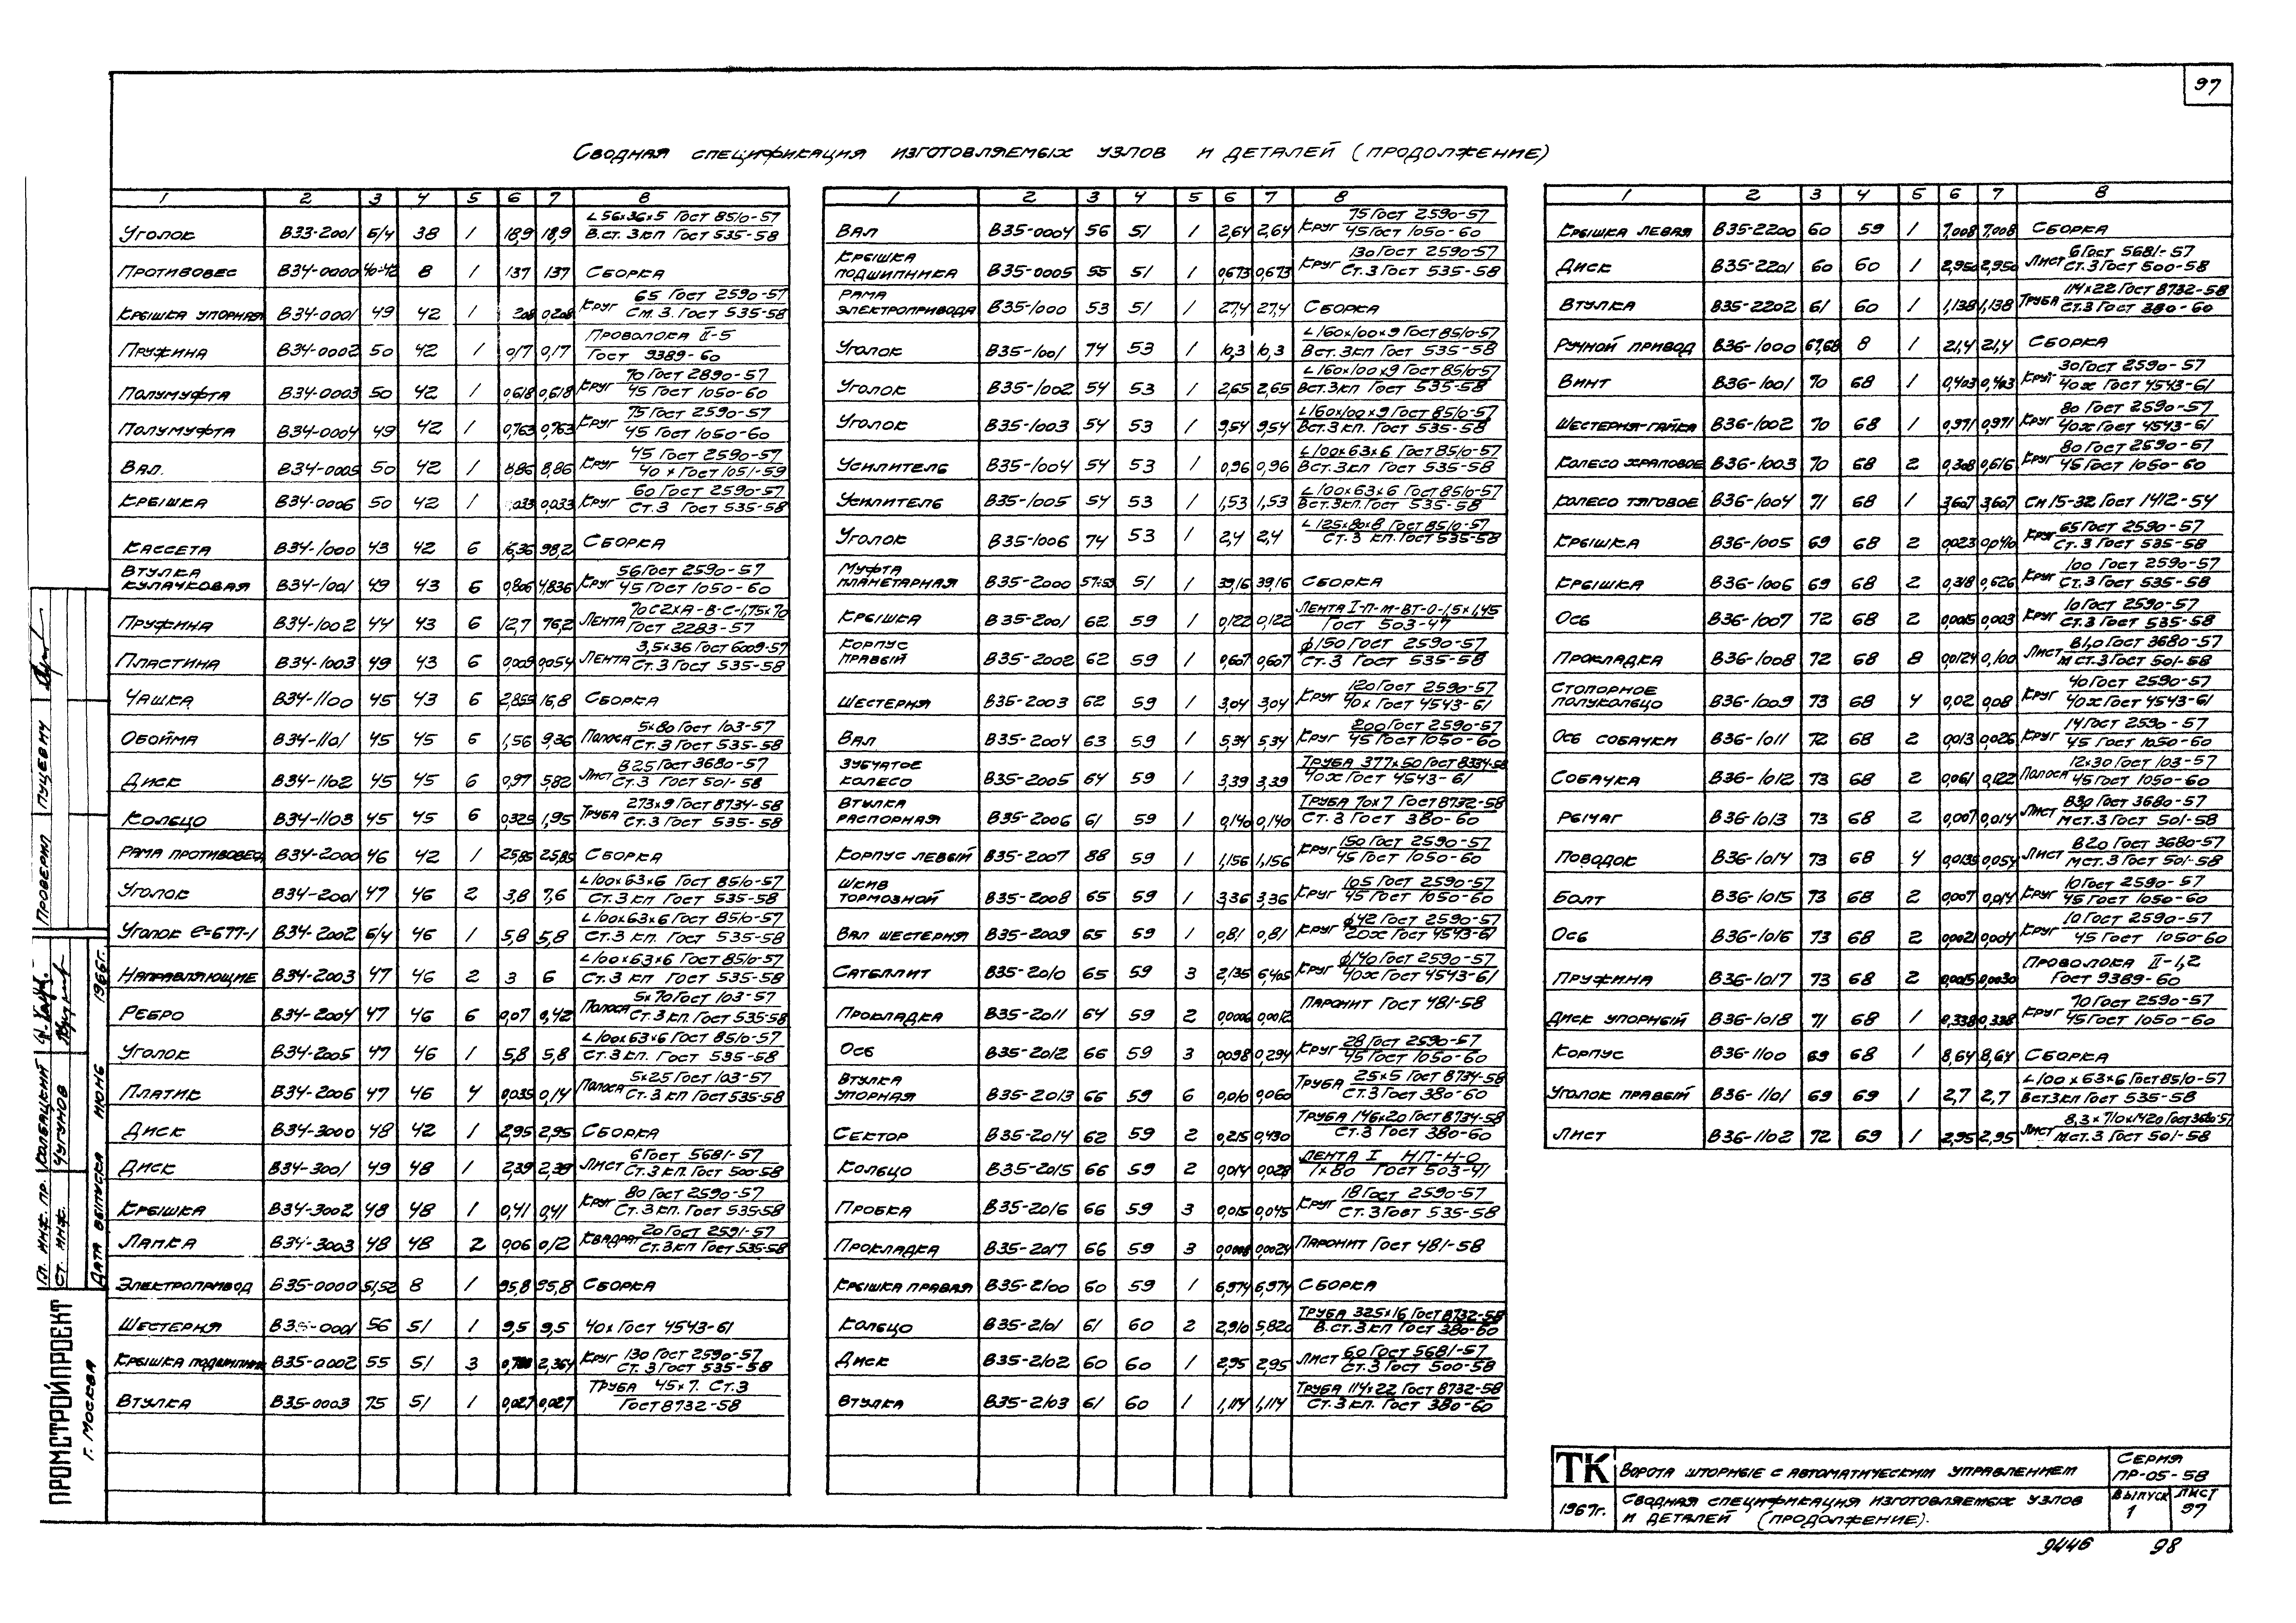 97
Сводная спецификация изготовляемых узлов и деталей (продолжение)
1 2 3 4 5 6 7 8
Уголок В33-2001 б/ч 38 1 18,9 18,9 ∟56×36×5 Гост 8510-57 / В.ст.3кп Гост 535-58
Противовес В34-0000 40-42 8 1 137 137 Сборка
Крышка упорная В34-0001 49 42 1 0,208 Круг 65 Гост 2590-57 / Ст.3. Гост 535-58
Пружина В34-0002 50 42 1 0,17 0,17 Проволока II-5 / Гост 9389-60
Полумуфта В34-0003 50 42 1 0,618 0,618 Круг 70 Гост 2890-57 / 45 Гост 1050-60
Полумуфта В34-0004 49 42 1 0,763 0,763 Круг 75 Гост 2590-57 / 45 Гост 1050-60
Вал. В34-0005 50 42 1 8,86 8,86 Круг 45 Гост 2590-57 / 40х Гост 1051-59
Крышка В34-0006 50 42 1 ,033 0,033 Круг 60 Гост 2590-57 / Ст.3 Гост 535-58
Кассета В34-1000 43 42 6 16,36 98,2 Сборка
Втулка кулачковая В34-1001 49 43 6 0,806 4,836 Круг 56 Гост 2590-57 / 45 Гост 1050-60
Пружина В34-1002 44 43 6 12,7 76,2 Лента 70С2ХА-В-С-1,75×70 / Гост 2283-57
Пластина В34-1003 49 43 6 0,009 0,054 Лента 3,5×36 Гост 6009-57 / Ст.3 Гост 535-58
Чашка В34-1100 45 43 6 2,855 16,8 Сборка
Обойма В34-1101 45 45 6 1,56 9,36 Полоса 5×80 Гост 103-57 / Ст.3 Гост 535-58
Диск В34-1102 45 45 6 0,97 5,82 Лист В25 Гост 3680-57 / Ст.3 Гост 501-58
Кольцо В34-1103 45 45 6 0,325 1,95 Труба 273×9 Гост 8734-58 / Ст.3 Гост 535-58
Рама противовес В34-2000 46 42 1 25,85 25,85 Сборка
Уголок В34-2001 47 46 2 3,8 7,6 ∟100×63×6 Гост 8510-57 / Ст.3 кп Гост 535-58
Уголок ℓ=677-1 В34-2002 б/ч 46 1 5,8 5,8 ∟100×63×6 Гост 8510-57 / Ст.3 кп. Гост 535-58
Направляющие В34-2003 47 46 2 3 6 ∟100×63×6 Гост 8510-57 / Ст.3 кп Гост 535-58
Ребро В34-2004 47 46 6 0,07 0,42 Полоса 5×70 Гост 103-57 / Ст.3 кп. Гост 535-58
Уголок В34-2005 47 46 1 5,8 5,8 ∟100×63×6 Гост 8510-57 / Ст.3 кп. Гост 535-58
Платик В34-2006 47 46 4 0,035 0,14 Полоса 5×25 Гост 103-57 / Ст.3 кп Гост 535-58
Диск В34-3000 48 42 1 2,95 2,95 Сборка
Диск В34-3001 49 48 1 2,39 2,39 Лист 6 Гост 5681-57 / Ст.3 кп. Гост 500-58
Крышка В34-3002 48 48 1 0,41 0,41 Круг 80 Гост 2590-57 / Ст.3 кп. Гост 535-58
Лапка В34-3003 48 48 2 0,06 0,12 Квадрат 20 Гост 2591-57 / Ст.3 кп Гост 535-58
Электропривод В35-0000 51,52 8 1 95,8 95,8 Сборка
Шестерня В35-0001 56 51 1 9,5 9,5 40х Гост 4543-61
Крышка подшипник В35-0002 55 51 3 2,364 Круг 130 Гост 2590-57 / Ст.3 Гост 535-58
Втулка В35-0003 75 51 1 0,027 0,027 Труба 45×7. Ст.3 / Гост 8732-58
1 2 3 4 5 6 7 8
Вал В35-0004 56 51 1 2,64 2,64 Круг 75 Гост 2590-57 / 45 Гост 1050-60
Крышка подшипника В35-0005 55 51 1 0,673 0,673 Круг 130 Гост 2590-57 / Ст.3 Гост 535-58
Рама электропривода В35-1000 53 51 1 27,4 27,4 Сборка
Уголок В35-1001 74 53 1 10,3 10,3 ∟160×100×9 Гост 8510-57 / Вст.3кп Гост 535-58
Уголок В35-1002 54 53 1 2,65 2,65 ∟160×100×9 Гост 8510-57 / Вст.3кп Гост 535-58
Уголок В35-1003 54 53 1 9,54 9,54 ∟160×100×9 Гост 8510-57 / Вст.3кп. Гост 535-58
Усилитель В35-1004 54 53 1 0,96 0,96 ∟100×63×6 Гост 8510-57 / Вст.3кп Гост 535-58
Усилитель В35-1005 54 53 1 1,53 1,53 ∟100×63×6 Гост 8510-57 / Вст.3кп. Гост 535-58
Уголок В35-1006 74 53 1 2,4 2,4 ∟125×80×8 Гост 8510-57 / Ст.3 кп. Гост 535-58
Муфта планетарная В35-2000 57÷59 51 1 39,16 39,16 Сборка
Крышка В35-2001 62 59 1 0,122 0,122 Лента I-П-М-ВТ-0-1,5×1,45 / Гост 503-47
Корпус правый В35-2002 62 59 1 0,607 0,607 ф150 Гост 2590-57 / Ст.3 Гост 535-58
Шестерня В35-2003 62 59 1 3,04 3,04 Круг 120 Гост 2590-57 / 40х Гост 4543-61
Вал В35-2004 63 59 1 5,34 5,34 Круг 200 Гост 2590-57 / 45 Гост 1050-60
Зубчатое колесо В35-2005 64 59 1 3,39 3,39 Труба 377×50 Гост 8334-58 / 40х Гост 4543-61
Втулка распорная В35-2006 61 59 1 0,140 0,140 Труба 70×7 Гост 8732-58 / Ст.3 Гост 380-60
Корпус левый В35-2007 88 59 1 1,156 1,156 Круг 150 Гост 2590-57 / 45 Гост 1050-60
Шкив тормозной В35-2008 65 59 1 3,36 3,36 Круг 105 Гост 2590-57 / 45 Гост 1050-60
Вал шестерня В35-2009 65 59 1 0,81 0,81 Круг ф42 Гост 2590-57 / 20х Гост 4543-61
Сателлит В35-2010 65 59 3 2,135 6,405 Круг ф140 Гост 2590-57 / 40х Гост 4543-61
Прокладка В35-2011 64 59 2 0,0006 0,0012 Паронит Гост 481-58
Ось В35-2012 66 59 3 0,098 0,294 Круг 28 Гост 2590-57 / 45 Гост 1050-60
Втулка упорная В35-2013 66 59 6 0,010 0,060 Труба 25×5 Гост 8734-58 / Ст.3 Гост 380-60
Сектор В35-2014 62 59 2 0,215 0,430 Труба 146×20 Гост 8734-58 / Ст.3 Гост 380-60
Кольцо В35-2015 66 59 2 0,014 0,028 Лента I НП-Н-0 / 1×80 Гост 503-41
Пробка В35-2016 66 59 3 0,015 0,045 Круг 18 Гост 2590-57 / Ст.3 Гост 535-58
Прокладка В35-2017 66 59 3 0,0008 0,0024 Паронит Гост 481-58
Крышка правая В35-2100 60 59 1 6,974 6,974 Сборка
Кольцо В35-2101 61 60 2 2,910 5,820 Труба 325×16 Гост 8732-58 / В.ст.3 кп Гост 380-60
Диск В35-2102 60 60 1 2,95 2,95 Лист 6,0 Гост 5681-57 / Ст.3 Гост 500-58
Втулка В35-2103 61 60 1 1,114 1,114 Труба 114×22 Гост 8732-58 / Ст.3 кп. Гост 380-60
1 2 3 4 5 6 7 8
Крышка левая В35-2200 60 59 1 7,008 7,008 Сборка
Диск В35-2201 60 60 1 2,950 2,950 Лист 6 Гост 5681-57 / Ст.3 Гост 500-58
Втулка В35-2202 61 60 1 1,138 1,138 Труба 114×22 Гост 8732-58 / Ст.3 Гост 380-60
Ручной привод В36-1000 67,68 8 1 21,4 21,4 Сборка
Винт В36-1001 70 68 1 0,403 0,403 Круг 30 Гост 2590-57 / 40х Гост 4543-61
Шестерня-гайка В36-1002 70 68 1 0,971 0,971 Круг 80 Гост 2590-57 / 40х Гост 4543-61
Колесо храповое В36-1003 70 68 2 0,308 0,616 Круг 80 Гост 2590-57 / 45 Гост 1050-60
Колесо тяговое В36-1004 71 68 1 3,607 3,607 Сч 15-32 Гост 1412-54
Крышка В36-1005 69 68 2 0,023 0,046 Круг 65 Гост 2590-57 / Ст.3 Гост 535-58
Крышка В36-1006 69 68 2 0,318 0,626 Круг 100 Гост 2590-57 / Ст.3 Гост 535-58
Ось В36-1007 72 68 2 0,0015 0,003 Круг 10 Гост 2590-57 / Ст.3 Гост 535-58
Прокладка В36-1008 72 68 8 0,0124 0,100 Лист В1,0 Гост 3680-57 / М ст.3 Гост 501-58
Стопорное полукольцо В36-1009 73 68 4 0,02 0,08 Круг 40 Гост 2590-57 / 40х Гост 4543-61
Ось собачки В36-1011 72 68 2 0,013 0,026 Круг 14 Гост 2590-57 / 45 Гост 1050-60
Собачка В36-1012 73 68 2 0,061 0,122 Полоса 12×30 Гост 103-57 / 45 Гост 1050-60
Рычаг В36-1013 73 68 2 0,007 0,014 Лист В30 Гост 3680-57 / М ст.3 Гост 501-58
Поводок В36-1014 73 68 4 0,0135 0,054 Лист В20 Гост 3680-57 / М ст.3 Гост 501-58
Болт В36-1015 73 68 2 0,007 0,014 Круг 10 Гост 2590-57 / 45 Гост 1050-60
Ось В36-1016 73 68 2 0,0021 0,004 Круг 10 Гост 2590-57 / 45 Гост 1050-60
Пружина В36-1017 73 68 2 0,0015 0,0030 Проволока II-1,2 / Гост 9389-60
Диск упорный В36-1018 71 68 1 0,338 0,338 Круг 70 Гост 2590-57 / 45 Гост 1050-60
Корпус В36-1100 69 68 1 8,64 8,64 Сборка
Уголок правый В36-1101 69 69 1 2,7 2,7 ∟100×63×6 Гост 8510-57 / Вст3кп Гост 535-58
Лист В36-1102 72 69 1 2,95 2,95 Лист 8,3×710×1420 Гост 3680-57 / М.ст.3 Гост 501-58
ТК Ворота шторные с автоматическим управлением
Серия ПР-05-58
1967г. Сводная спецификация изготовляемых узлов и деталей (продолжение).
Выпуск 1 Лист 97
9446 98
Проверил Пуцевич
Гл. инж. пр. Колбацкий
Ст. инж. Чугунов
Дата выпуска июнь 1966г.
ПРОМСТРОЙПРОЕКТ
г. Москва